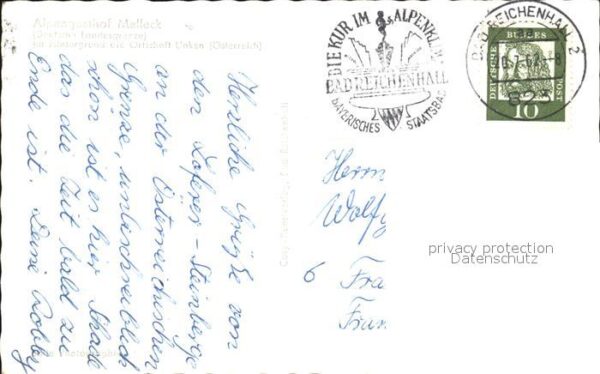 Alpengasthof Melleck
(Deutsche Landesgrenze)
im Hintergrund die Ortschaft Unken (Österreich)
Herzliche Grüße von
den Loferer - Steinberge
an der Österreichischen
Grenze, unbeschreiblich
schön ist es hier. Schade
das die Zeit bald zu
Ende ist. Deine Robby
DIE KUR IM ALPENKLIMA
BAD REICHENHALL
BAYERISCHES STAATSBAD
BAD REICHENHALL 2
823
DEUTSCHE BUNDESPOST
10
Herrn
Wolfg
6 Fra
Fran
privacy protection
Datenschutz